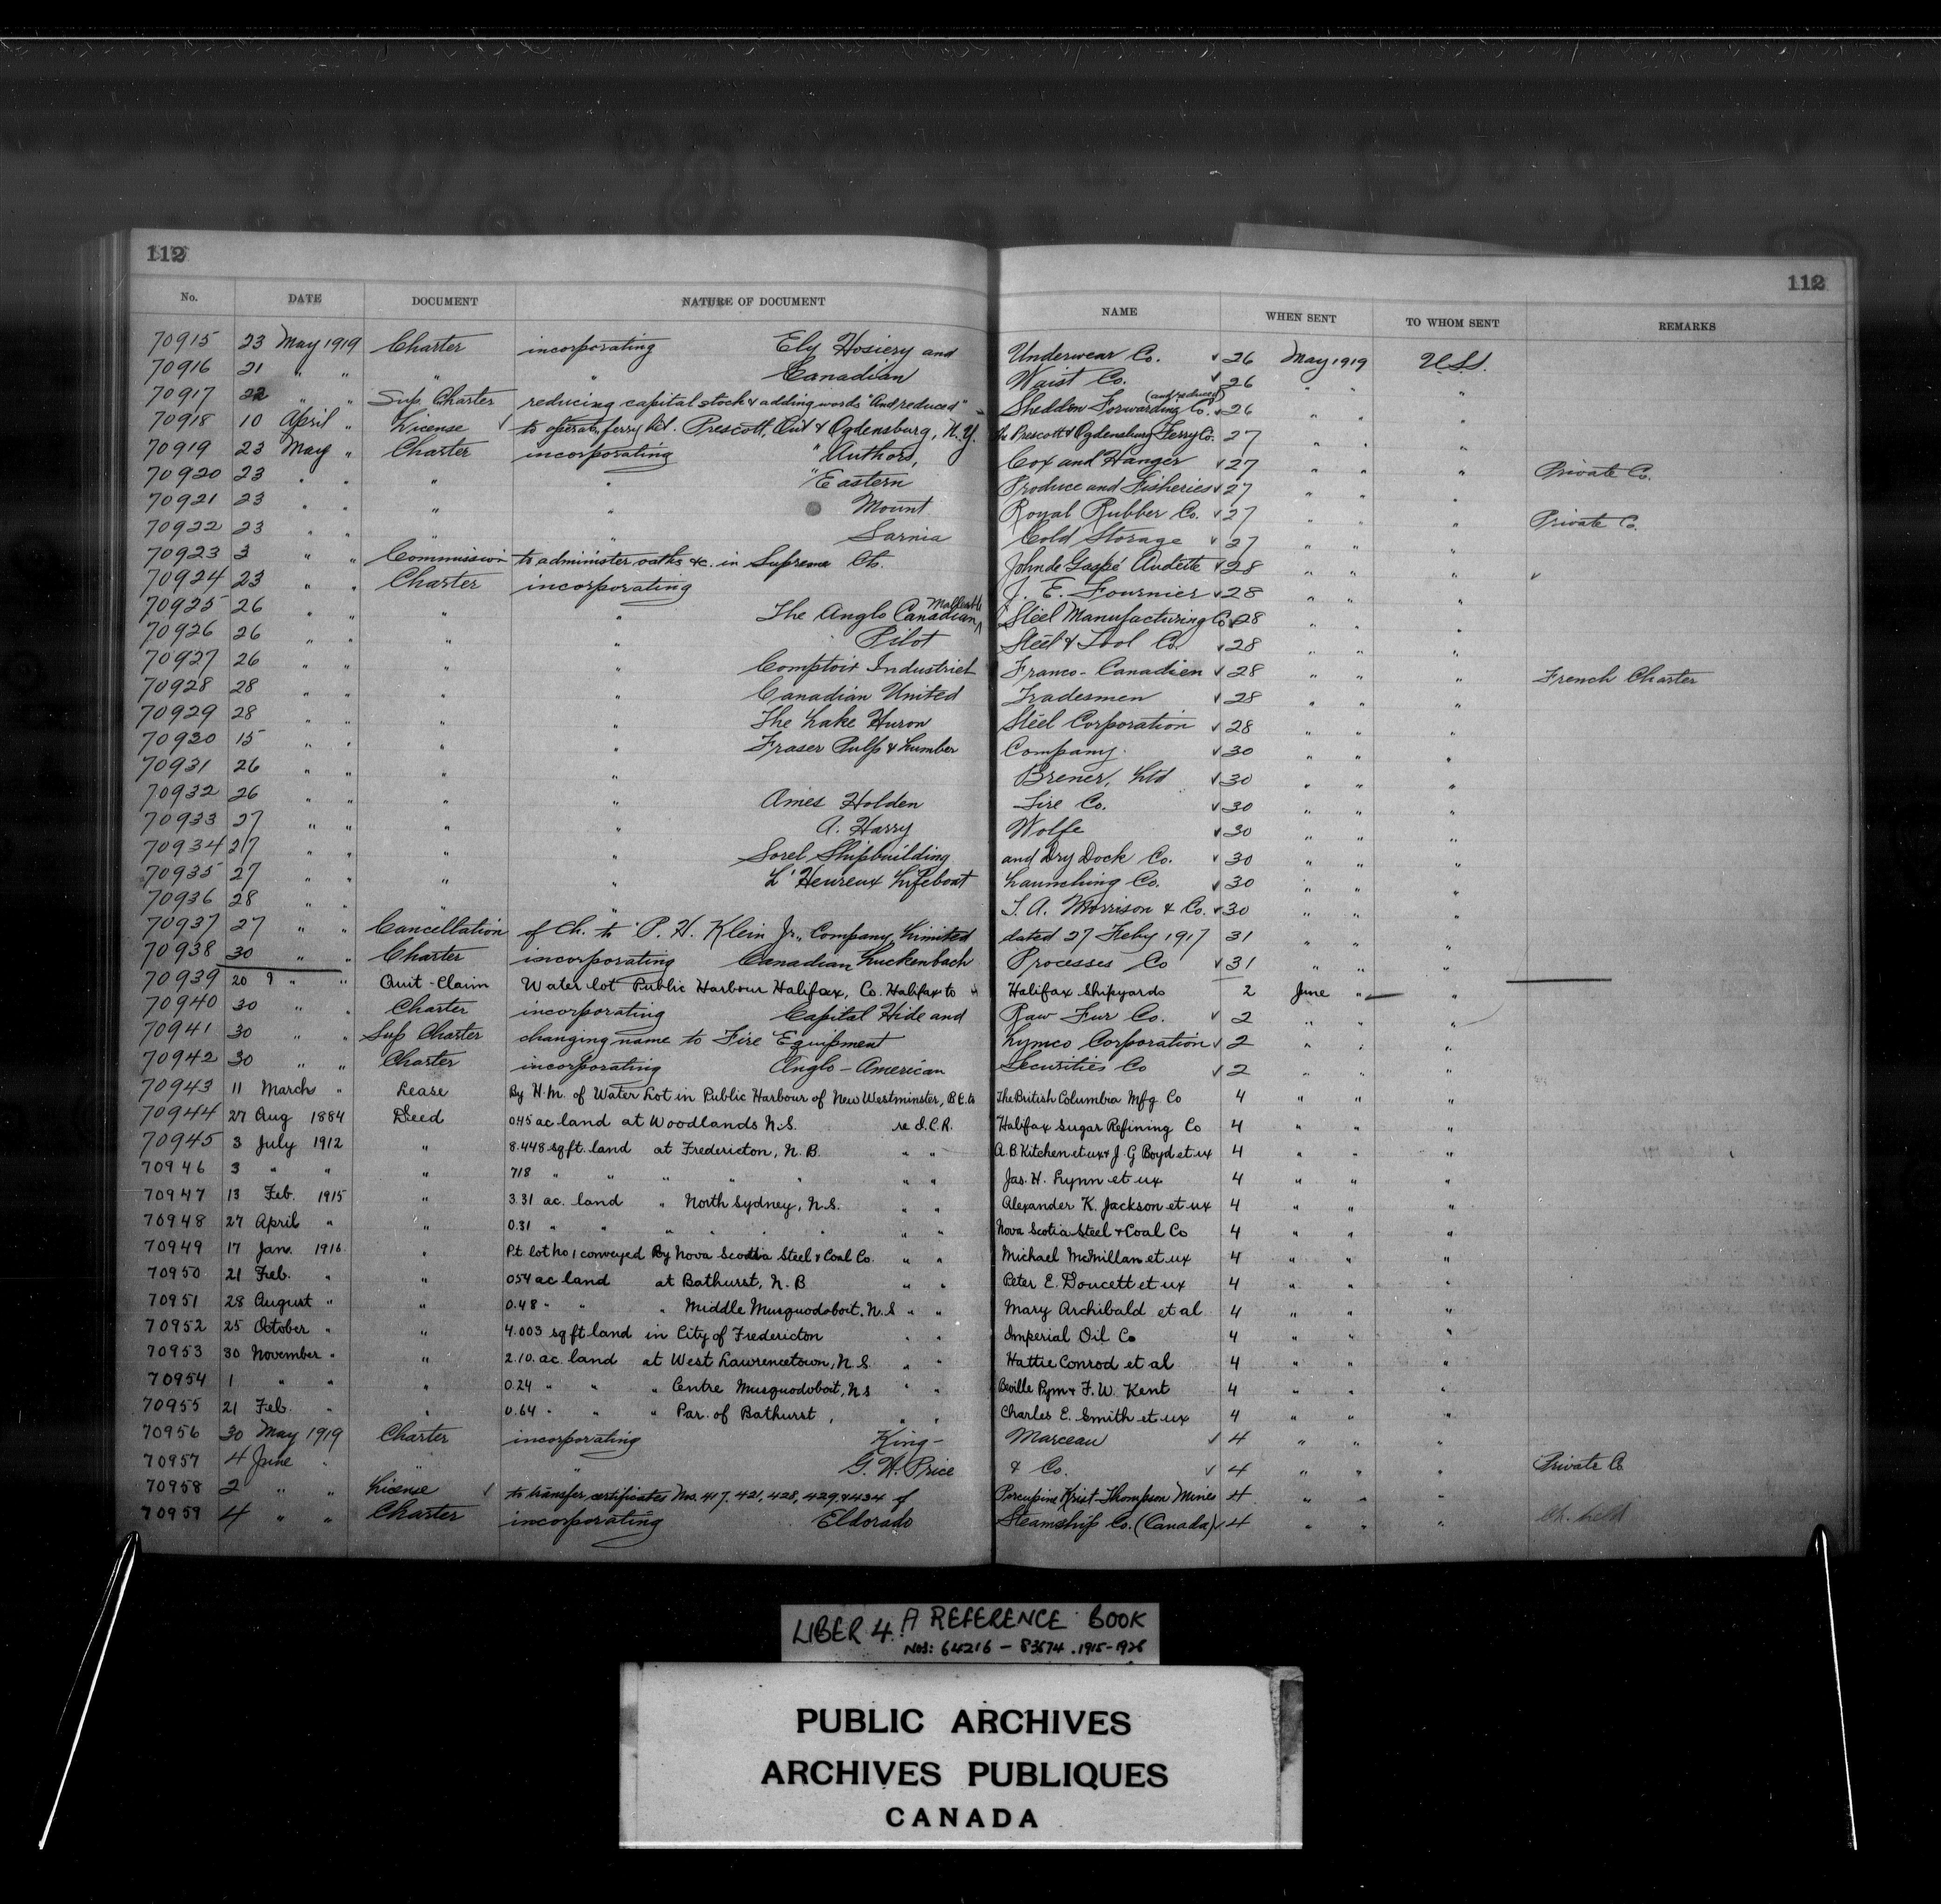 112 112
No. DATE DOCUMENT NATURE OF DOCUMENT NAME WHEN SENT TO WHOM SENT REMARKS
70915 23 May 1919 Charter incorporating Ely Hosiery and Underwear Co. ✓ 26 May 1919 U.S.S.
70916 21 " " " " Canadian Waist Co. ✓ 26 " " "
70917 22 " " Sup Charter reducing capital stock & adding words "And reduced" Sheddon Forwarding Co. (and reduced) ✓ 26 " " "
70918 10 April " License ✓ to operate ferry bet. Prescott, Ont & Ogdensburg, N.Y. The Prescott & Ogdensburg Ferry Co. 27 " " "
70919 23 May " Charter incorporating " Authors, Cox and Hanger ✓ 27 " " " Private Co.
70920 23 " " " " " Eastern Produce and Fisheries ✓ 27 " " "
70921 23 " " " " Mount Royal Rubber Co. ✓ 27 " " " Private Co.
70922 23 " " " " Sarnia Cold Storage ✓ 27 " " "
70923 3 " " Commission to administer oaths &c. in Supreme Ct. John de Gaspé Audette ✓ 28 " " " ✓
70924 23 " " Charter incorporating J. E. Fournier ✓ 28 " " "
70925 26 " " " " The Anglo Canadian Malleable Steel Manufacturing Co ✓ 28 " " "
70926 26 " " " " Pilot Steel & Tool Co. ✓ 28 " " "
70927 26 " " " " Comptoir Industriel Franco-Canadien ✓ 28 " " " French Charter
70928 28 " " " " Canadian United Tradesmen ✓ 28 " " "
70929 28 " " " " The Lake Huron Steel Corporation ✓ 28 " " "
70930 15 " " " " Fraser Pulp & Lumber Company. ✓ 30 " " "
70931 26 " " " " Brener, Ltd ✓ 30 " " "
70932 26 " " " " Ames Holden Tire Co. ✓ 30 " " "
70933 27 " " " " A. Harry Wolfe ✓ 30 " " "
70934 27 " " " " Sorel Shipbuilding and Dry Dock Co. ✓ 30 " " "
70935 27 " " " " L'Heureux Lifeboat Launching Co. ✓ 30 " " "
70936 28 " " " " T. A. Morrison & Co. ✓ 30 " " "
70937 27 " " Cancellation of Ch. to P. H. Klein Jr., Company, Limited dated 27 Feby 1917 31 " " "
70938 30 " " Charter incorporating Canadian Luckenbach Processes Co ✓ 31 " " "
70939 20 ? " " Quit-Claim Water lot Public Harbour Halifax, Co. Halifax to Halifax Shipyards 2 June " "
70940 30 " " Charter incorporating Capital Hide and Raw Fur Co. ✓ 2 " " "
70941 30 " " Sup Charter changing name to Fire Equipment Lymco Corporation ✓ 2 " " "
70942 30 " " Charter incorporating Anglo-American Securities Co ✓ 2 " " "
70943 11 March " Lease By H.M. of Water Lot in Public Harbour of New Westminster, B.C. to The British Columbia Mfg Co 4 " " "
70944 27 Aug 1884 Deed 0.45 ac land at Woodlands N.S. re I.C.R. Halifax Sugar Refining Co 4 " " "
70945 3 July 1912 " 8.448 sq ft. land at Fredericton, N.B. " " A. B. Kitchen et ux & J. G Boyd et ux 4 " " "
70946 3 " " " 718 " " " " " " Jas. H. Lynn et ux 4 " " "
70947 13 Feb. 1915 " 3.31 ac. land " North Sydney, N.S. " " Alexander K. Jackson et ux 4 " " "
70948 27 April " " 0.31 " " " " " " " Nova Scotia Steel & Coal Co 4 " " "
70949 17 Jan. 1916 " Pt. lot No 1 conveyed By Nova Scotia Steel & Coal Co. " " Michael McMillan et ux 4 " " "
70950 21 Feb. " " 0.54 ac land at Bathurst, N.B " " Peter E. Doucett et ux 4 " " "
70951 28 August " " 0.48 " " " Middle Musquodoboit, N.S " " Mary Archibald et al 4 " " "
70952 25 October " " 4.003 sq ft land in City of Fredericton " " Imperial Oil Co 4 " " "
70953 30 November " " 2.10. ac. land at West Lawrencetown, N.S. " " Hattie Conrod et al 4 " " "
70954 1 " " " 0.24 " " " Centre Musquodoboit, N.S " " Beville Pym & F. W. Kent 4 " " "
70955 21 Feb. " " 0.64 " " " Par. of Bathurst, " " Charles E. Smith et ux 4 " " "
70956 30 May 1919 Charter incorporating King- Marceau ✓ 4 " " "
70957 4 June " " " G. H. Price & Co. ✓ 4 " " " Private Co
70958 2 " " License ✓ to transfer certificates Nos. 417, 421, 428, 429, & 434 of Porcupine Krist-Thompson Mines 4 " " "
70959 4 " " Charter incorporating Eldorado Steamship Co. (Canada) ✓ 4 " " " Ch. held
LIBER 4. A REFERENCE BOOK
NOS: 64216 - 83674 . 1915-1928
PUBLIC ARCHIVES
ARCHIVES PUBLIQUES
CANADA